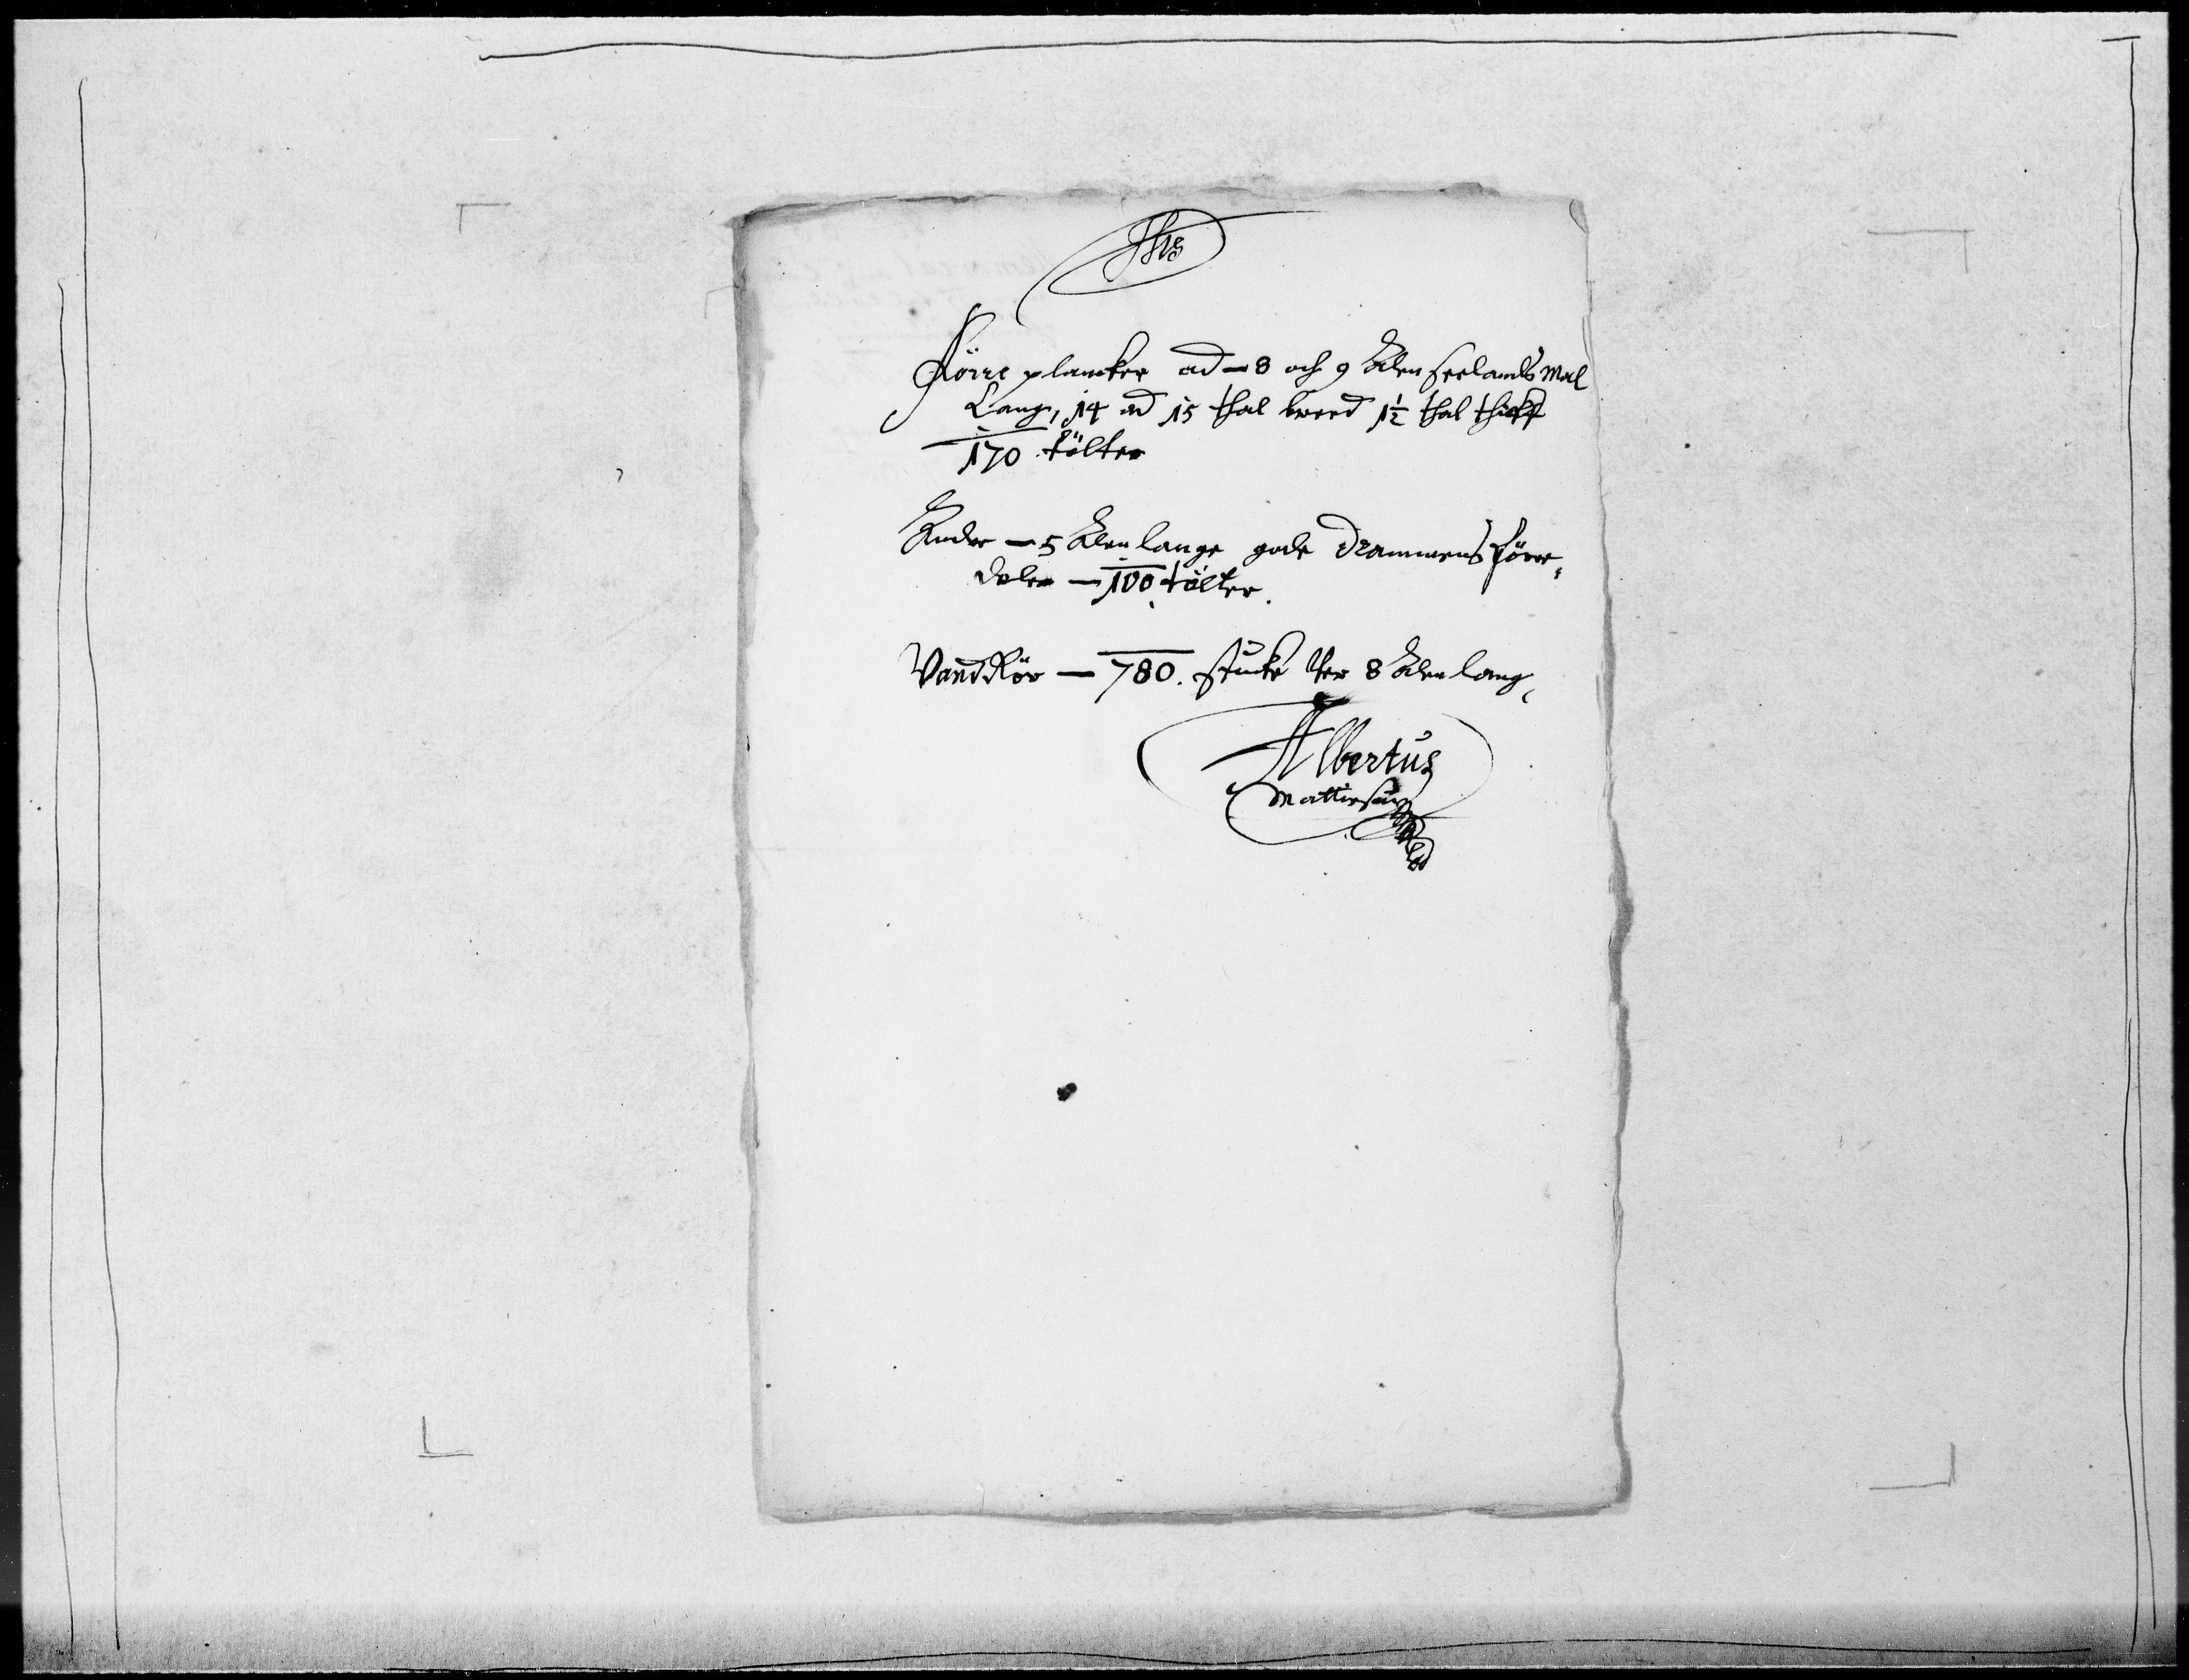 IHS
Förre plancker ad - 8 och 9 Alen Seelands Mal
Lang, 14 ad 15 thol breed 1½ thol thickt
170 tölter
Ander - 5 Alen lange gode Drammens före
deler - 100 tölter.
Vand Rör - 780. stücke ver 8 Alen lang
Albertus
Mattiesen